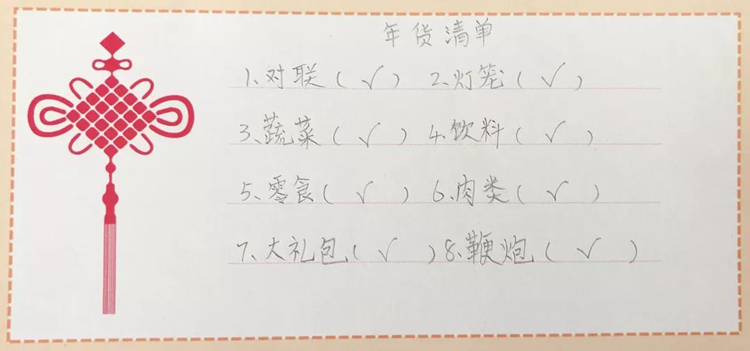 年货清单
1、对联(√) 2、灯笼(√)
3、蔬菜(√) 4、饮料(√)
5、零食(√) 6、肉类(√)
7、大礼包(√) 8、鞭炮(√)